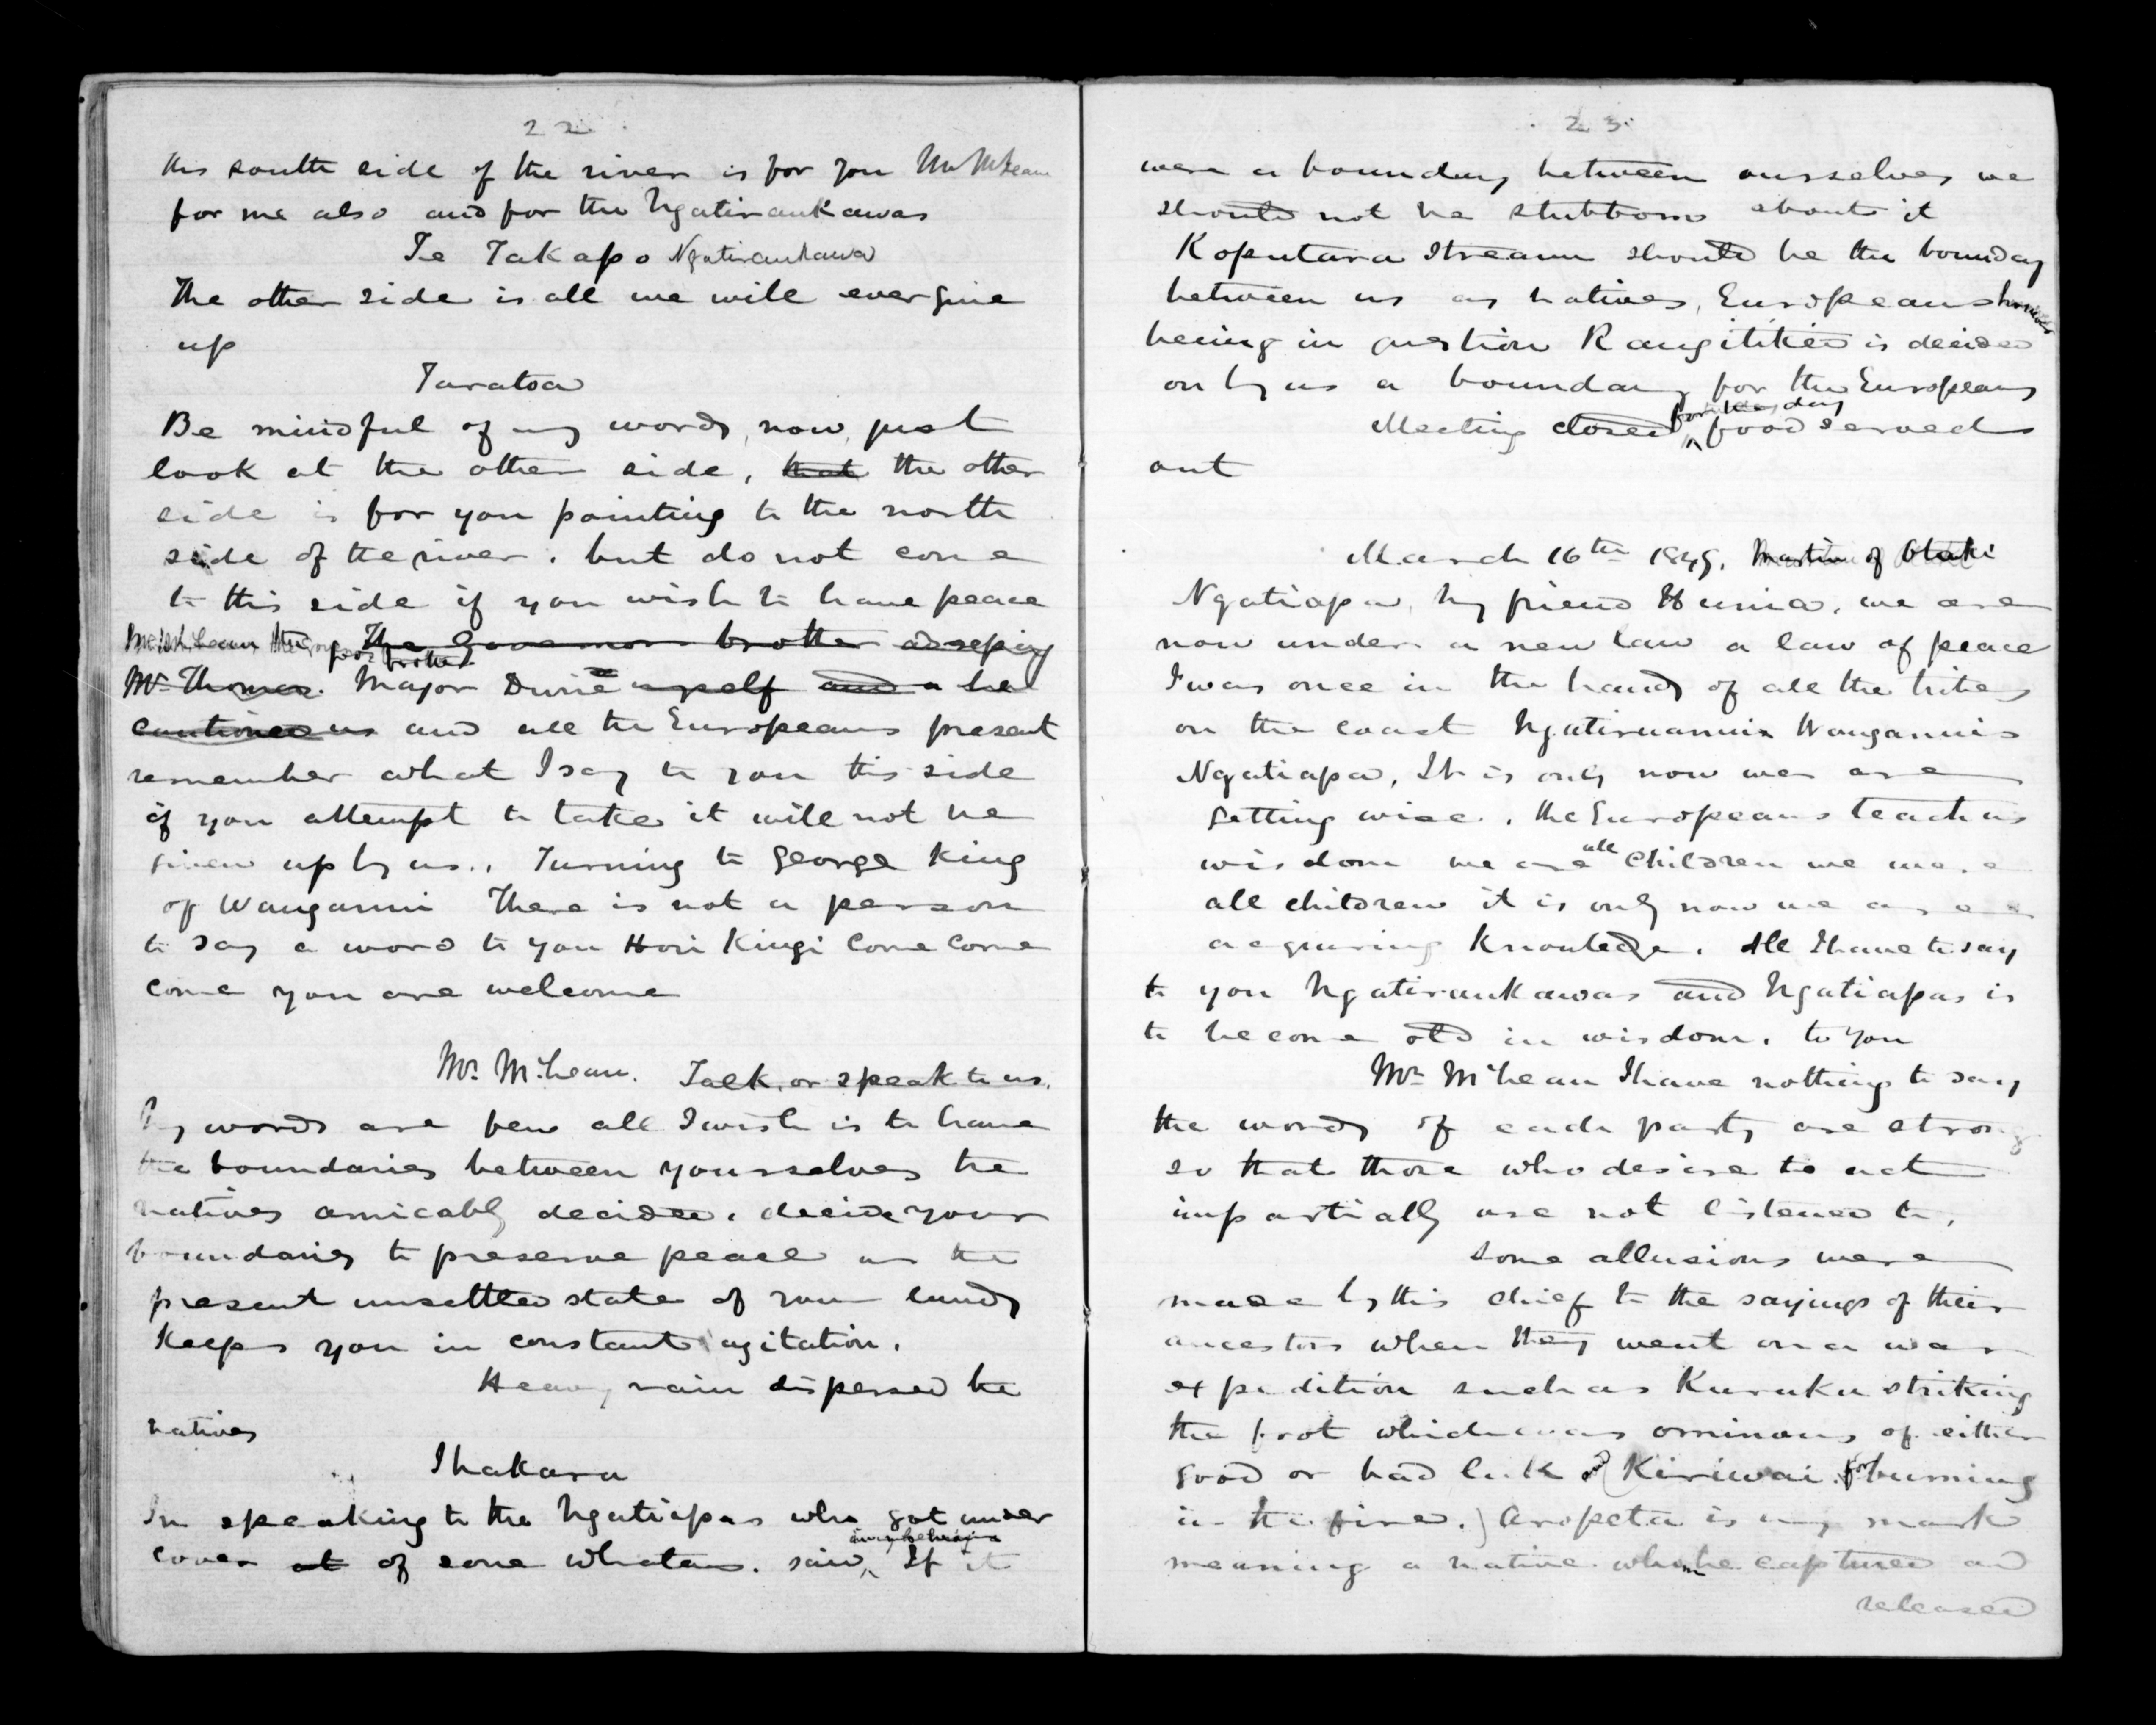 22
this south side of the river is for you Mr McLean
for me also and for the Ngatiraukawas
Te Takapo Ngatiraukawa
The other side is all we will ever give
up
Taratoa
Be mindful of my words, now, just
look at the other side, that the other
side is for you pointing to the north
side of the river. but do not come
to this side if you wish to have peace
The Governors brother
Mr Thomas. Major Durie myself and a he
cautioned us and all the Europeans present
remember what I say to you this side
if you attempt to take it will not be
given up by us., Turning to George King
of Wanganui There is not a person
to say a word to you Hori Kingi Come Come
Come you are welcome
Mr. McLean. Talk, or speak to us.
My words are few all I wish is to have
the boundaries between yourselves the
natives amicably decided. decide your
boundaries to preserve peace as the
present unsettled state of your lands
keeps you in constant agitation.
Heavy rain dispersed the
natives
Ihakara
In speaking to the Ngatiapas who got under
cover at of some Whatas. said, If it
23
were a boundary between ourselves we
should not be stubborn about it
Koputara Stream should be the bounday
between us as natives, Europeans however
being in question Rangitikei is decided
on by us a boundary for the Europeans
Meeting closed for the day food served
out
March 16th 1849. Martin of Otaki
Ngatiapa, my friend Hunia, we are
now under a new law a law of peace
I was once in the hands of all the tribes
on the coast Ngatiruanuis Wanganuis
Ngatiapa, It is only now we are
getting wise. the Europeans teach us
wisdom we are all children we were
all children it is only now we are
acquiring knowledge. All I have to say
to you Ngatiraukawas and Ngatiapas is
to become old in wisdom. to you
Mr McLean I have nothing to say
the words of each party are strong
so that those who desire to act
impartially are not listened to.
Some allusions were
made by this chief to the sayings of their
ancestors when they went on a war
expedition such as Kuruku striking
the foot which was ominous of either
good or bad luck and (Kiriwai for burning
in the fire.) Aropeta is my mark
meaning a native whom he captured and
released